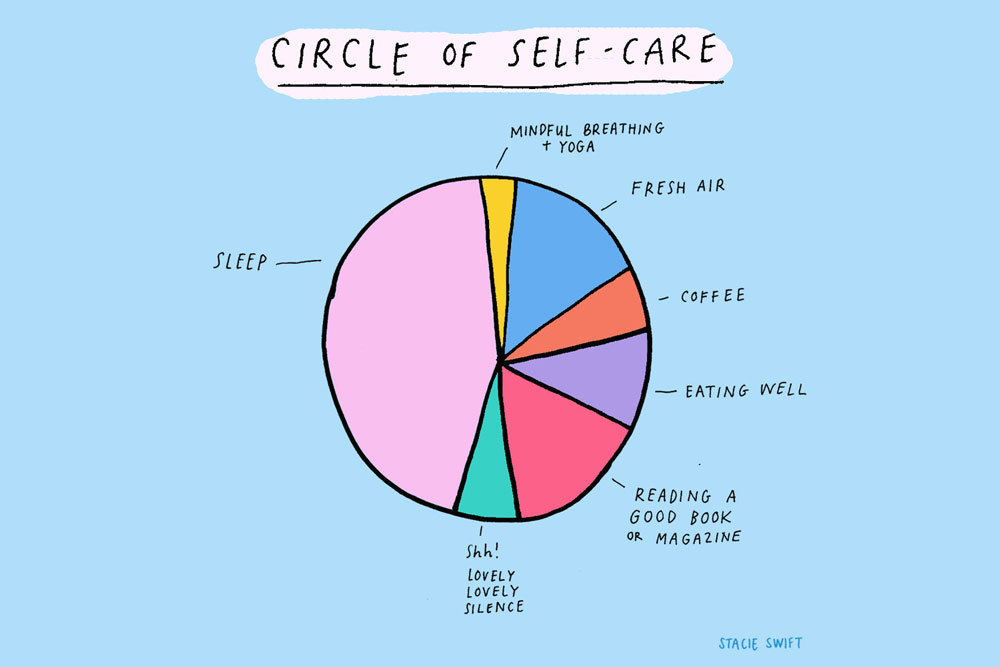 CIRCLE OF SELF-CARE
MINDFUL BREATHING
+ YOGA
FRESH AIR
SLEEP
COFFEE
EATING WELL
READING A
GOOD BOOK
OR MAGAZINE
Shh!
LOVELY
LOVELY
SILENCE
STACIE SWIFT